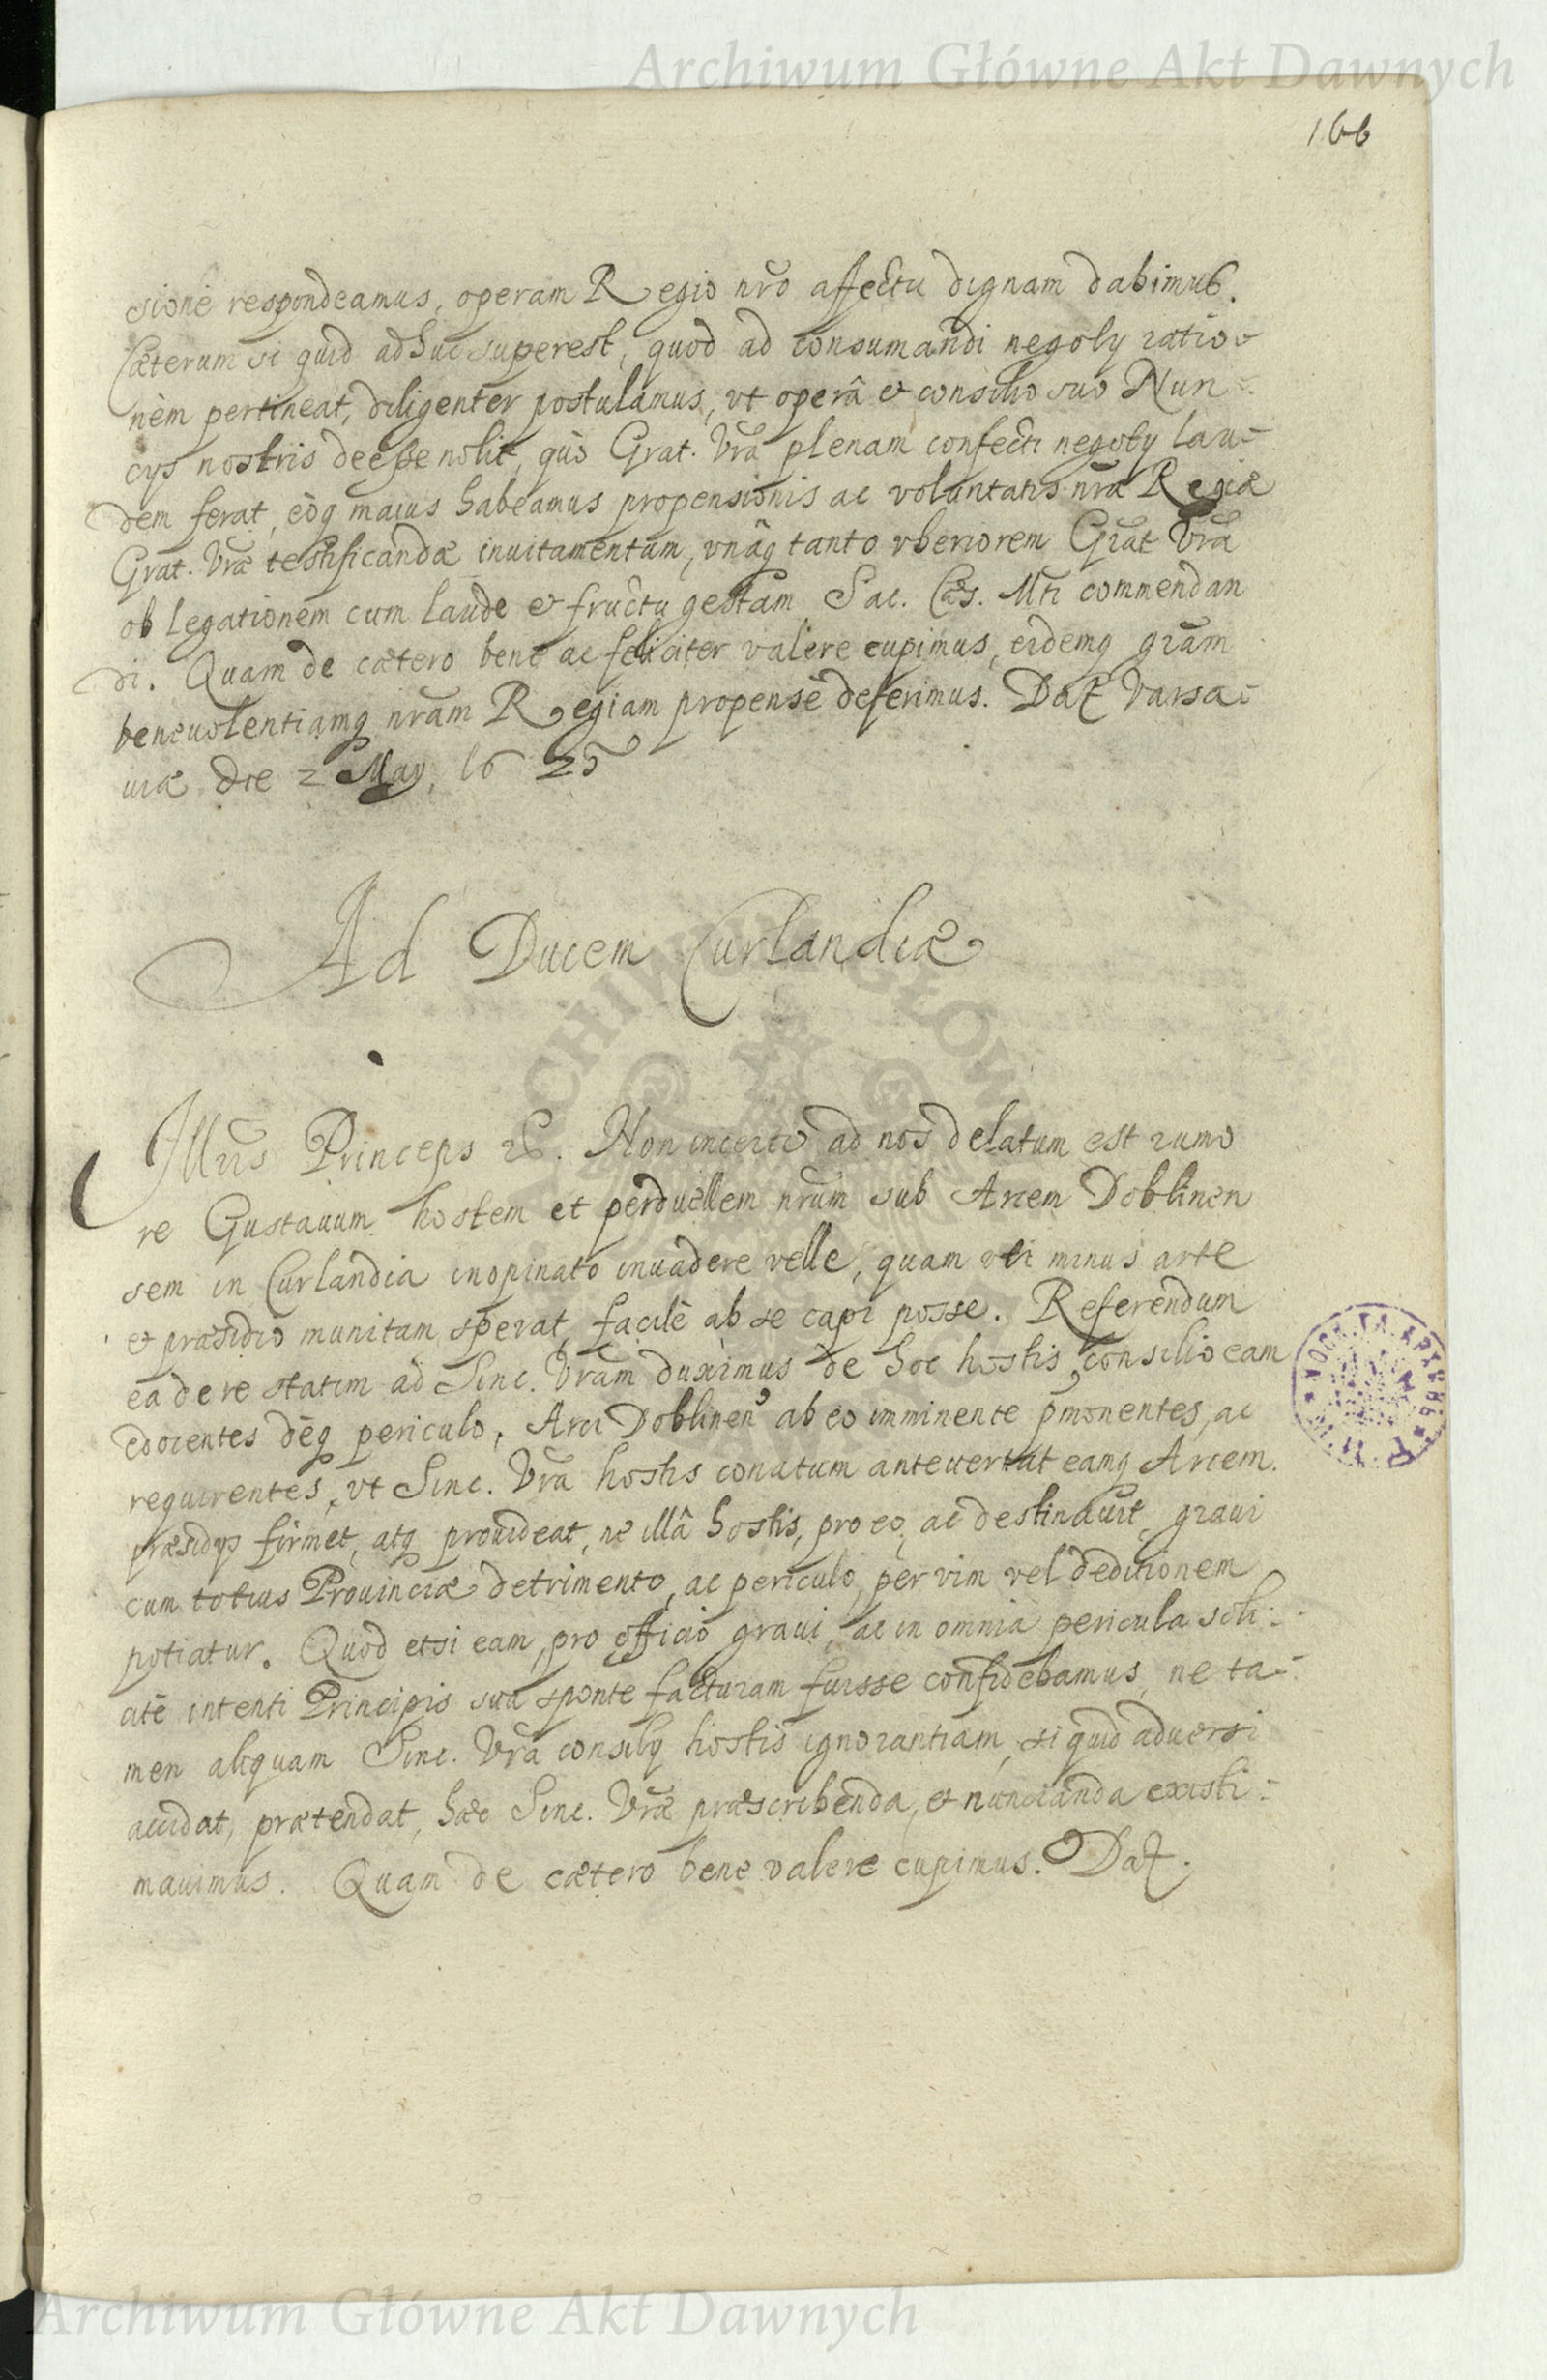 Archiwum Główne Akt Dawnych
166
sione respondeamus, operam Regio nr̃o affectu dignam dabimus.
Cæterum si quid adhuc superest, quod ad consumandi negotÿ ratio-
nem pertineat, diligenter postulamus, vt operâ et consilio suo Nun-
cÿs nostris deesse nolit, quò Grat. Vrã plenam confecti negotÿ lau-
dem ferat, eòq maius habeamus propensionis ac voluntatis nrã Regiæ
Grat. Vræ testificandæ inuitamentum, vnâq tanto vberiorem Grãt Vrã
ob legationem cum laude et fructu gestam Sac. Cæs. Mti commendan
di. Quam de cætero bene ac feliciter valere cupimus, eidemq grãm
beneuolentiamq nrãm Regiam propensè deferimus. Dat Varsa-
uiæ die 2 Maÿ, 1625
Ad Ducem Curlandiæ
Illr̃is Princeps etc. Non incerto ad nos delatum est rumo
re Gustauum hostem et perduellem nrũm sub Arcem Doblinen
sem in Curlandia inopinato inuadere velle, quam uti minus arte
et præsidio munitam sperat, facilè ab se capi posse. Referendum
ea de re statim ad Sinc. Vrãm duximus de hoc hostis consilio eam
edocentes dèq periculo, Arci Doblinen ab eo imminente p̃monentes, ac
requirentes, vt Sinc. Vrã hostis conatum anteuertat eamq Arcem
præsidÿs firmet, atq prouideat, ne illâ hostis, pro eo, ac destinauit, graui
cum totius Prouinciæ detrimento, ac periculo, per vim vel deditionem
potiatur. Quod etsi eam, pro officio graui, ac in omnia pericula soli-
citè intenti Principis sua sponte facturam fuisse confidebamus, ne ta-
men aliquam Sinc. Vrã consilÿ hostis ignorantiam, si quid aduersi
accidat, prætendat, hæc Sinc. Vræ præscribenda, et nuncianda existi-
mauimus. Quam de cætero bene valere cupimus. Dat.
Archiwum Główne Akt Dawnych